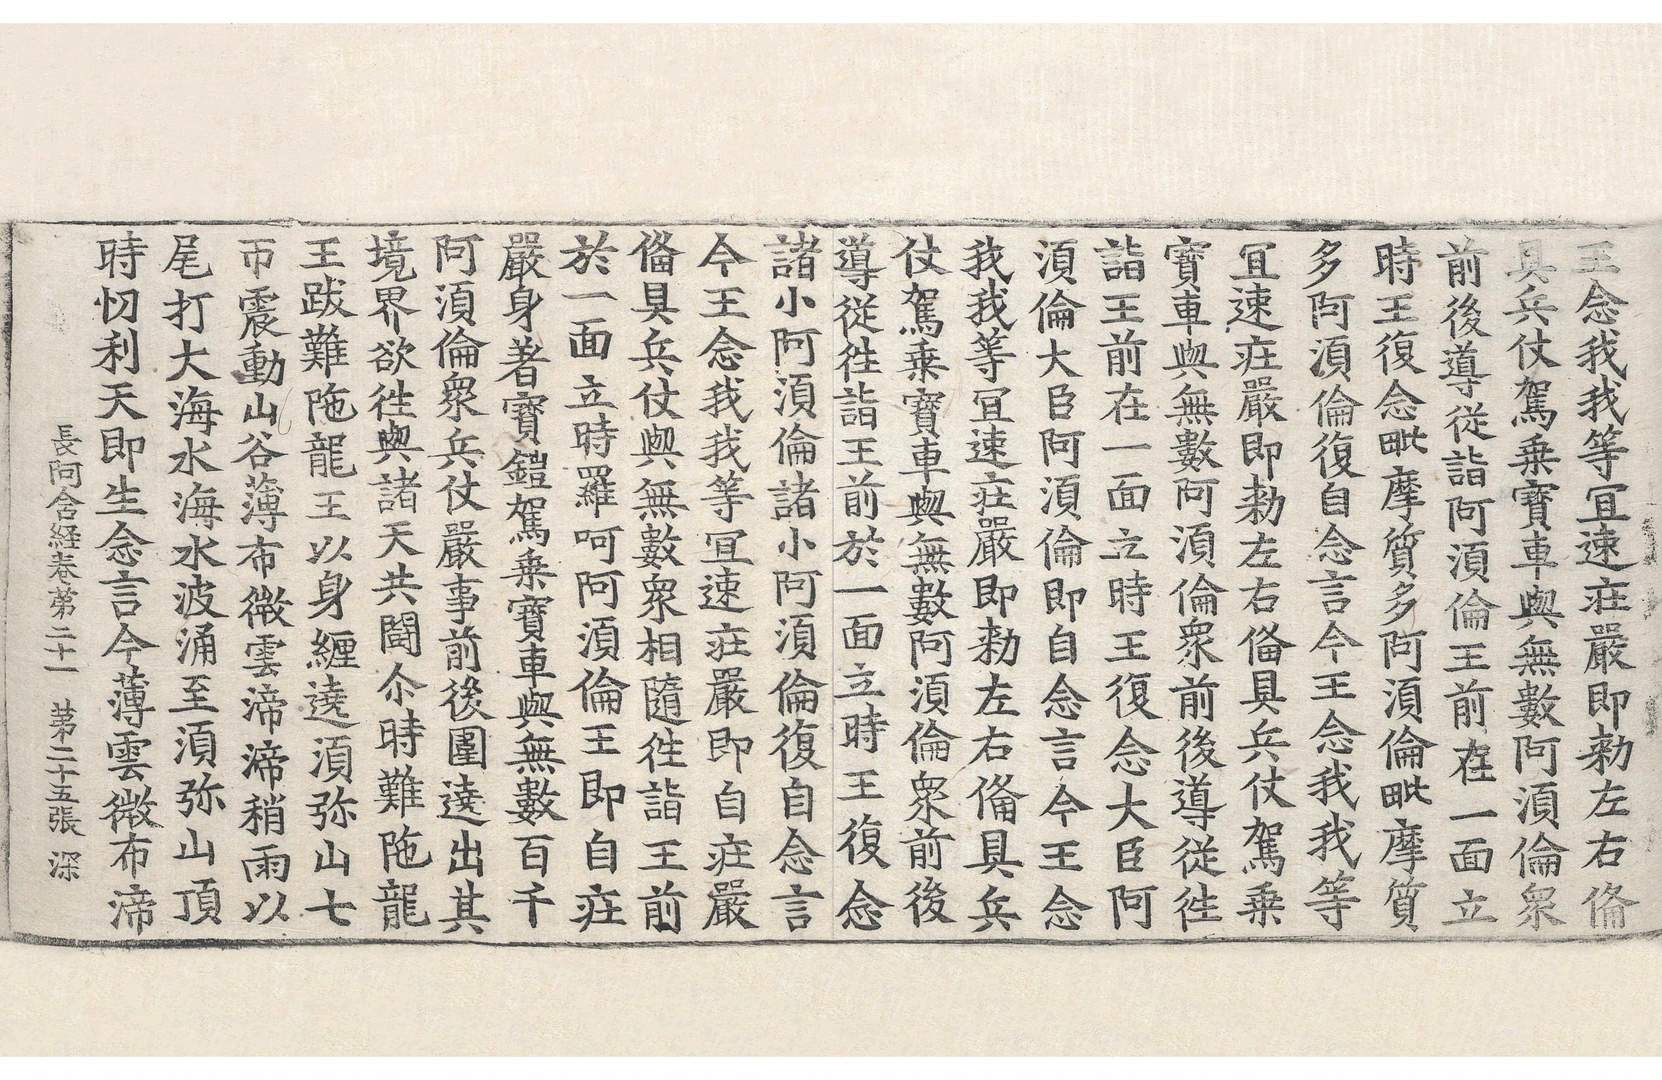 王念我我等宜速莊嚴即勑左右俻
具兵仗駕乗寶車與無數阿湏倫衆
前後導從詣阿湏倫王前在一面立
時王復念毗摩質多阿湏倫毗摩質
多阿湏倫復自念言今王念我我等
宜速莊嚴即勑左右俻具兵仗駕乗
寶車與無數阿湏倫衆前後導從徃
詣王前在一面立時王復念大臣阿
湏倫大臣阿湏倫即自念言今王念
我我等宜速莊嚴即勑左右俻具兵
仗駕乗寶車與無數阿湏倫衆前後
導從徃詣王前於一面立時王復念
諸小阿湏倫諸小阿湏倫復自念言
今王念我我等宜速莊嚴即自莊嚴
俻具兵仗與無數衆相隨徃詣王前
於一面立時羅呵阿湏倫王即自莊
嚴身著寶鎧駕乗寶車與無數百千
阿湏倫衆兵仗嚴事前後圍遶出其
境界欲徃與諸天共闘尒時難陁龍
王跋難陁龍王以身纏遶湏弥山七
帀震動山谷薄布微雲渧渧稍雨以
尾打大海水海水波涌至湏弥山頂
時忉利天即生念言今薄雲微布渧
長阿含経卷第二十一　第二十五張　深